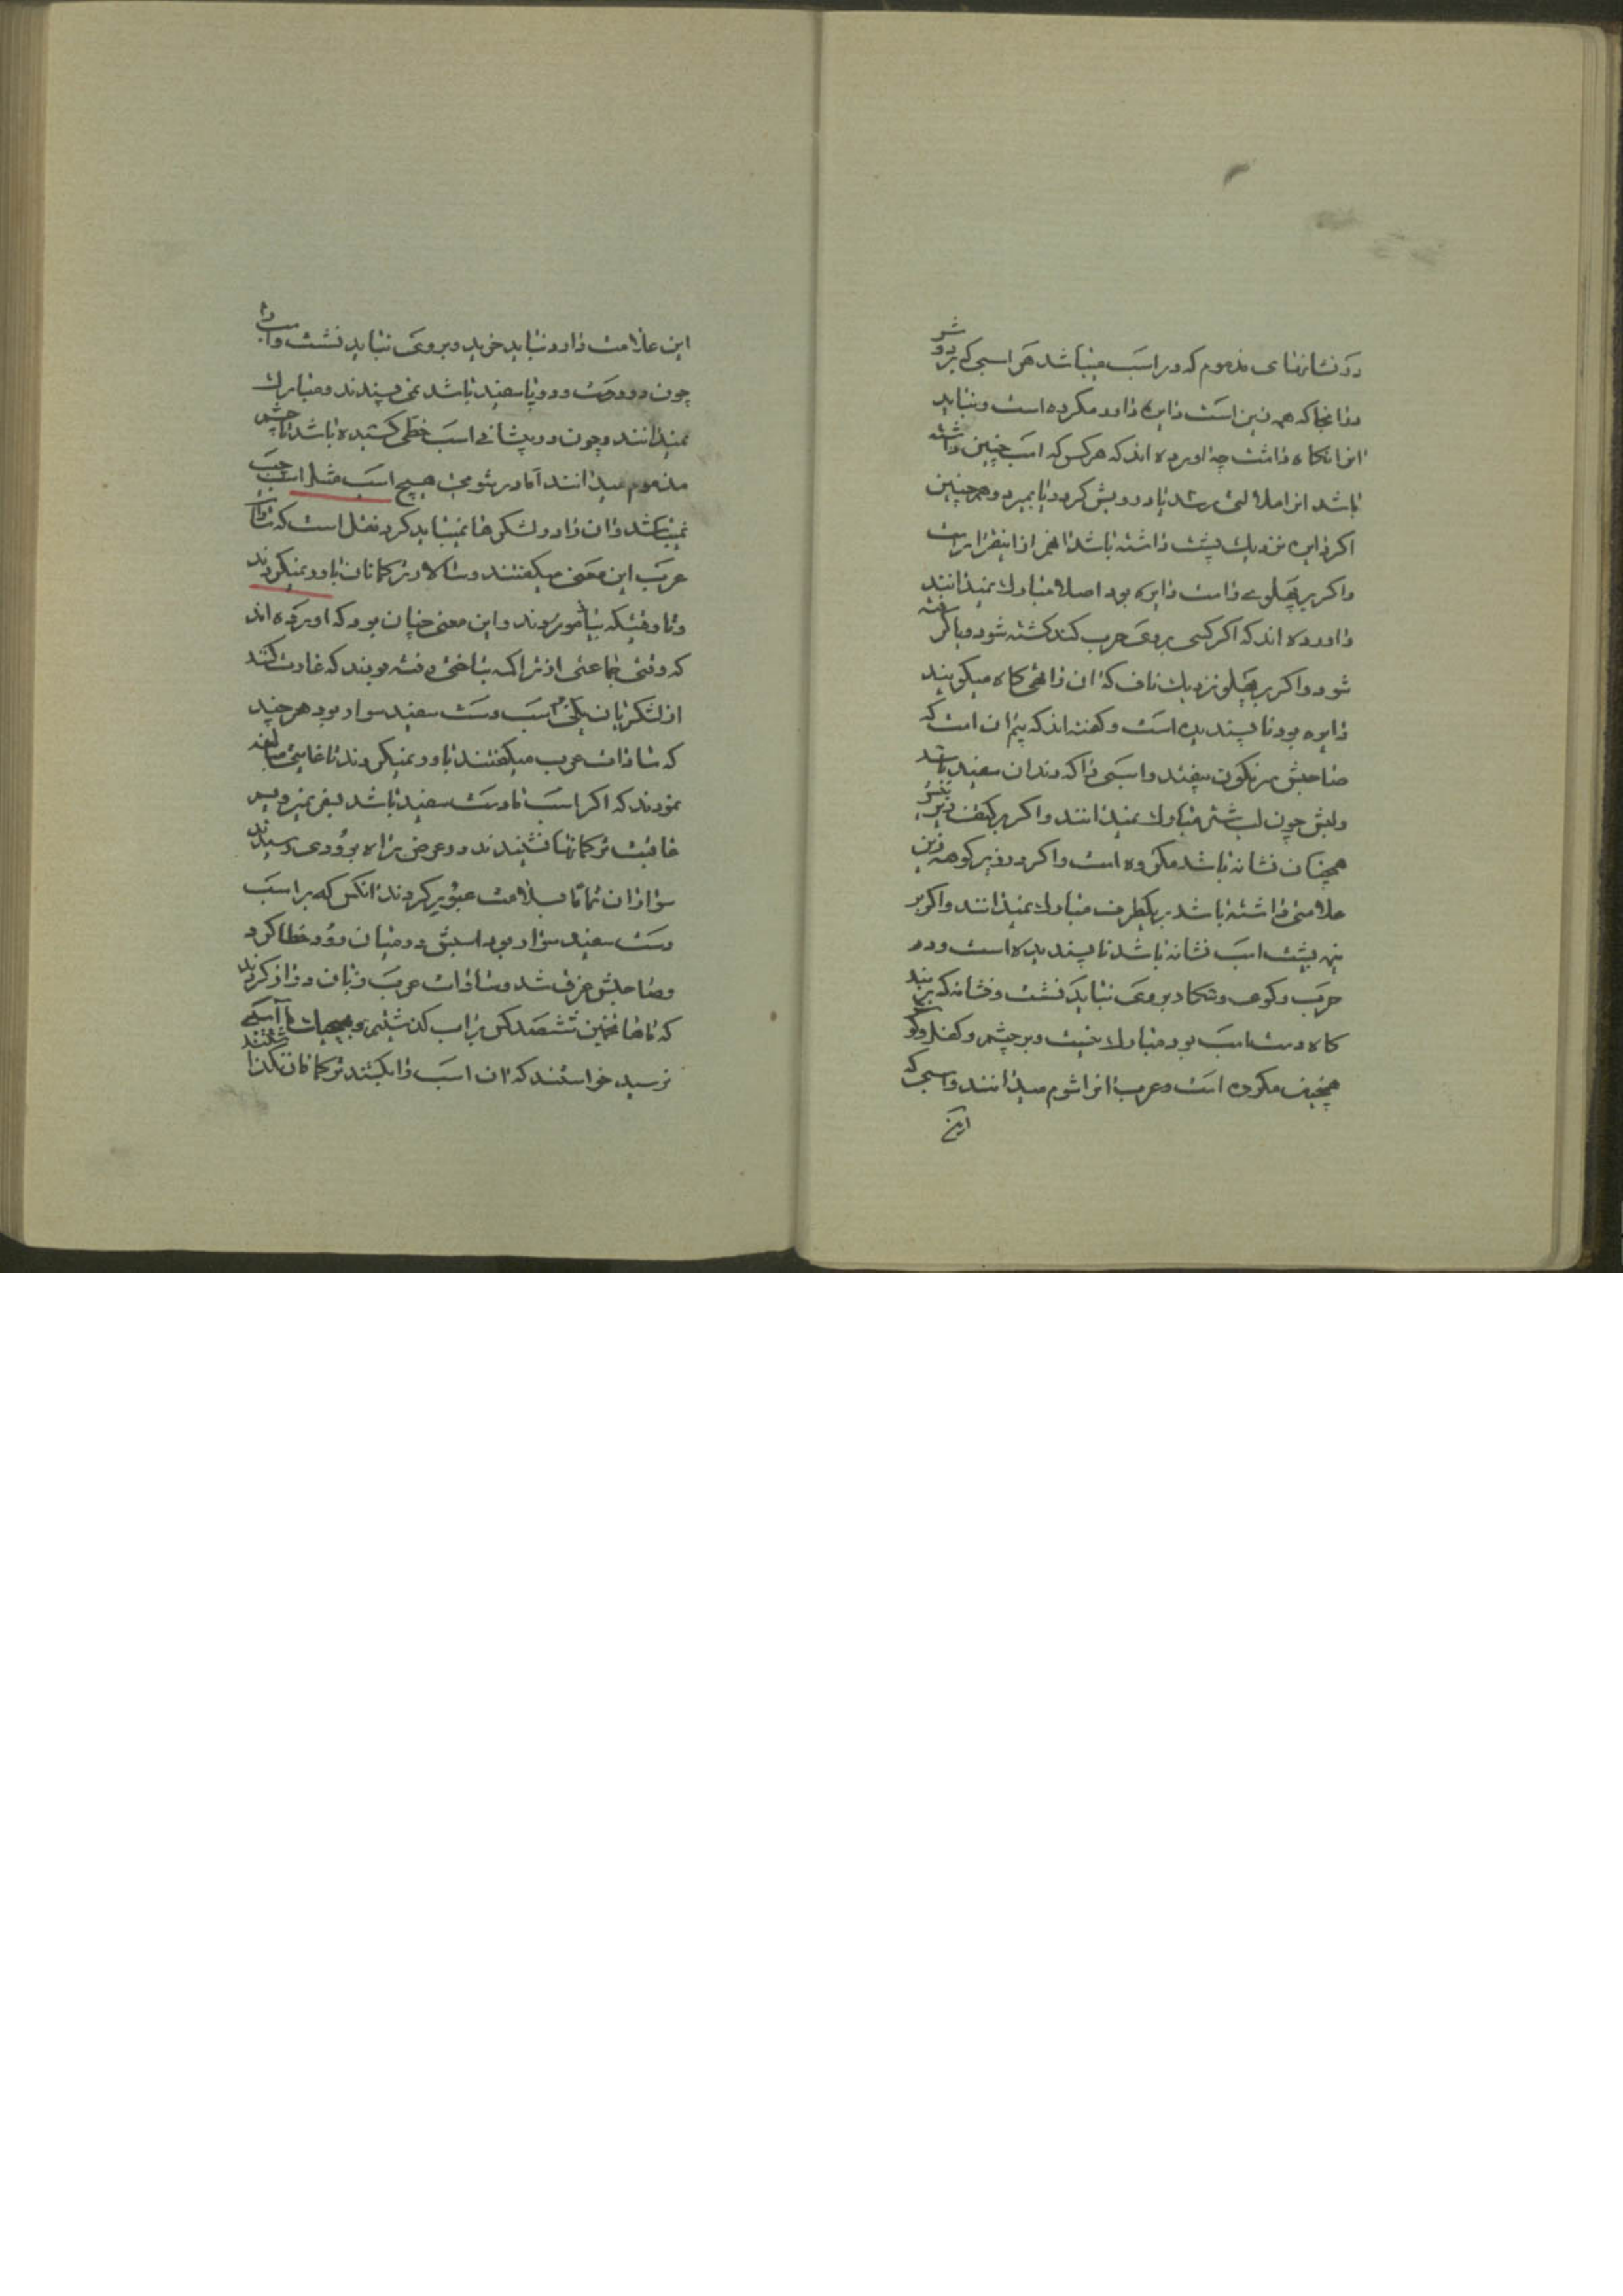 در نشانهای مذموم که در اسب میباشد هر اسبی که بر دوش
و ازانجا که همه زین است دایره دارد مکروه است و نباید
انرا نگاه داشت چه اورده اند که هر کس که اسب چنین داشته
باشد انرا ملالتی رسد یا درویش کردد یا بمیرد و همچنین
اکر دایره نزدیک پشت داشته باشد انهم ازاینقرار است
و اکر بر پهلوی راست دایره بود اصلا مبارک نمیدانند
و اورده اند که اکر کسی بر وی حرب کند کشته شود
شود و اکر بر پهلو نزدیک ناف که ان را تهی کاه میکویند
دایره بود ناپسندیده است و کفته اند که بیم ان است که
صاحبش سرنکون بیفتد و اسبی را که دندان سفید باشد
ولبش چون لب شتر مبارک نمیدانند و اکر بر کتف
همچنان نشانه باشد مکروه است و اکر در زیر کوهه زین
علامتی داشته باشد بر یکطرف مبارک نمیدانند و اکر بر
پشت اسب نشانه باشد ناپسندیده است و در
حرب و کوی و شکار بر وی نباید نشست و نشانه که بر بند
کاه دست اسب بود مبارک نیست و بر چشم و کفل و کلو
همچنین مکروه است و عرب انرا شوم میدانند و اسبی که
این
این علامت دارد نباید خرید و بر وی نباید نشست و اسب را
چون دو دست و دو پا سفید باشد نمی پسندند و مبارک
نمیدانند و چون در پیشانی اسب خطی کشیده باشد تا چشم
مذموم میدانند اما در شومی هیچ اسب مثل اسب چپ
نمیباشد و ان را در لشکرها نمیباید کرد نقل است که سادات
عرب این معنی میکفتند و سالار ترکمانان باور نمیکردند
تا وقتیکه بیازمودند و این معنی چنان بود که اورده اند
که وقتی جماعتی از تراکمه بتاختی رفته بودند که غارت کنند
از لشکریان یکی بر اسب دست سفید سوار بود هر چند
که سادات عرب میکفتند باور نمیکردند تا غایتی مبالغه
نمودند که اکر اسب ما دست سفید باشد بسفر نمیرویم
عاقبت ترکمانها نشنیدند در عرض راه برودی رسیدند
سواران تماما بسلامت عبور کردند انکس که بر اسب
دست سفید سوار بود اسبش در میان رود خطا کرد
و صاحبش غرق شد و سادات عرب زبان دراز کردند
که ماها همین ششصد کس براب کذشتیم و بهیچیک ما آسیبی
نرسید خواستند که ان اسب را بکشند ترکمانان نکذاشتند